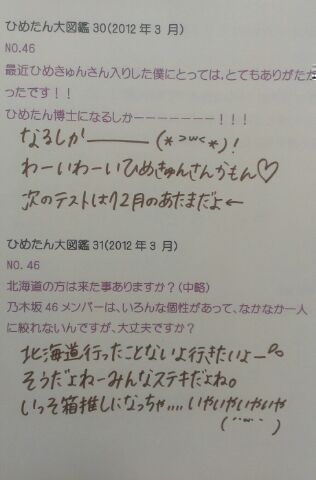 ひめたん大図鑑30(2012年3月)
NO.46
最近ひめきゅんさん入りした僕にとっては、とてもありがたか
ったです!!
ひめたん博士になるしかーーーーーーー!!!
なるしか―――(*>ω<*)!
わーいわーいひめきゅんさんかもん♡
次のテストは12月のあたまだよ←
ひめたん大図鑑31(2012年3月)
NO.46
北海道の方は来た事ありますか?(中略)
乃木坂46メンバーは、いろんな個性があって、なかなか一人
に絞れないんですが、大丈夫ですか?
北海道行ったことないよ行きたいよー
そうだよねーみんなステキだよね。
いっそ箱推しになっちゃ‥‥いやいやいやいや